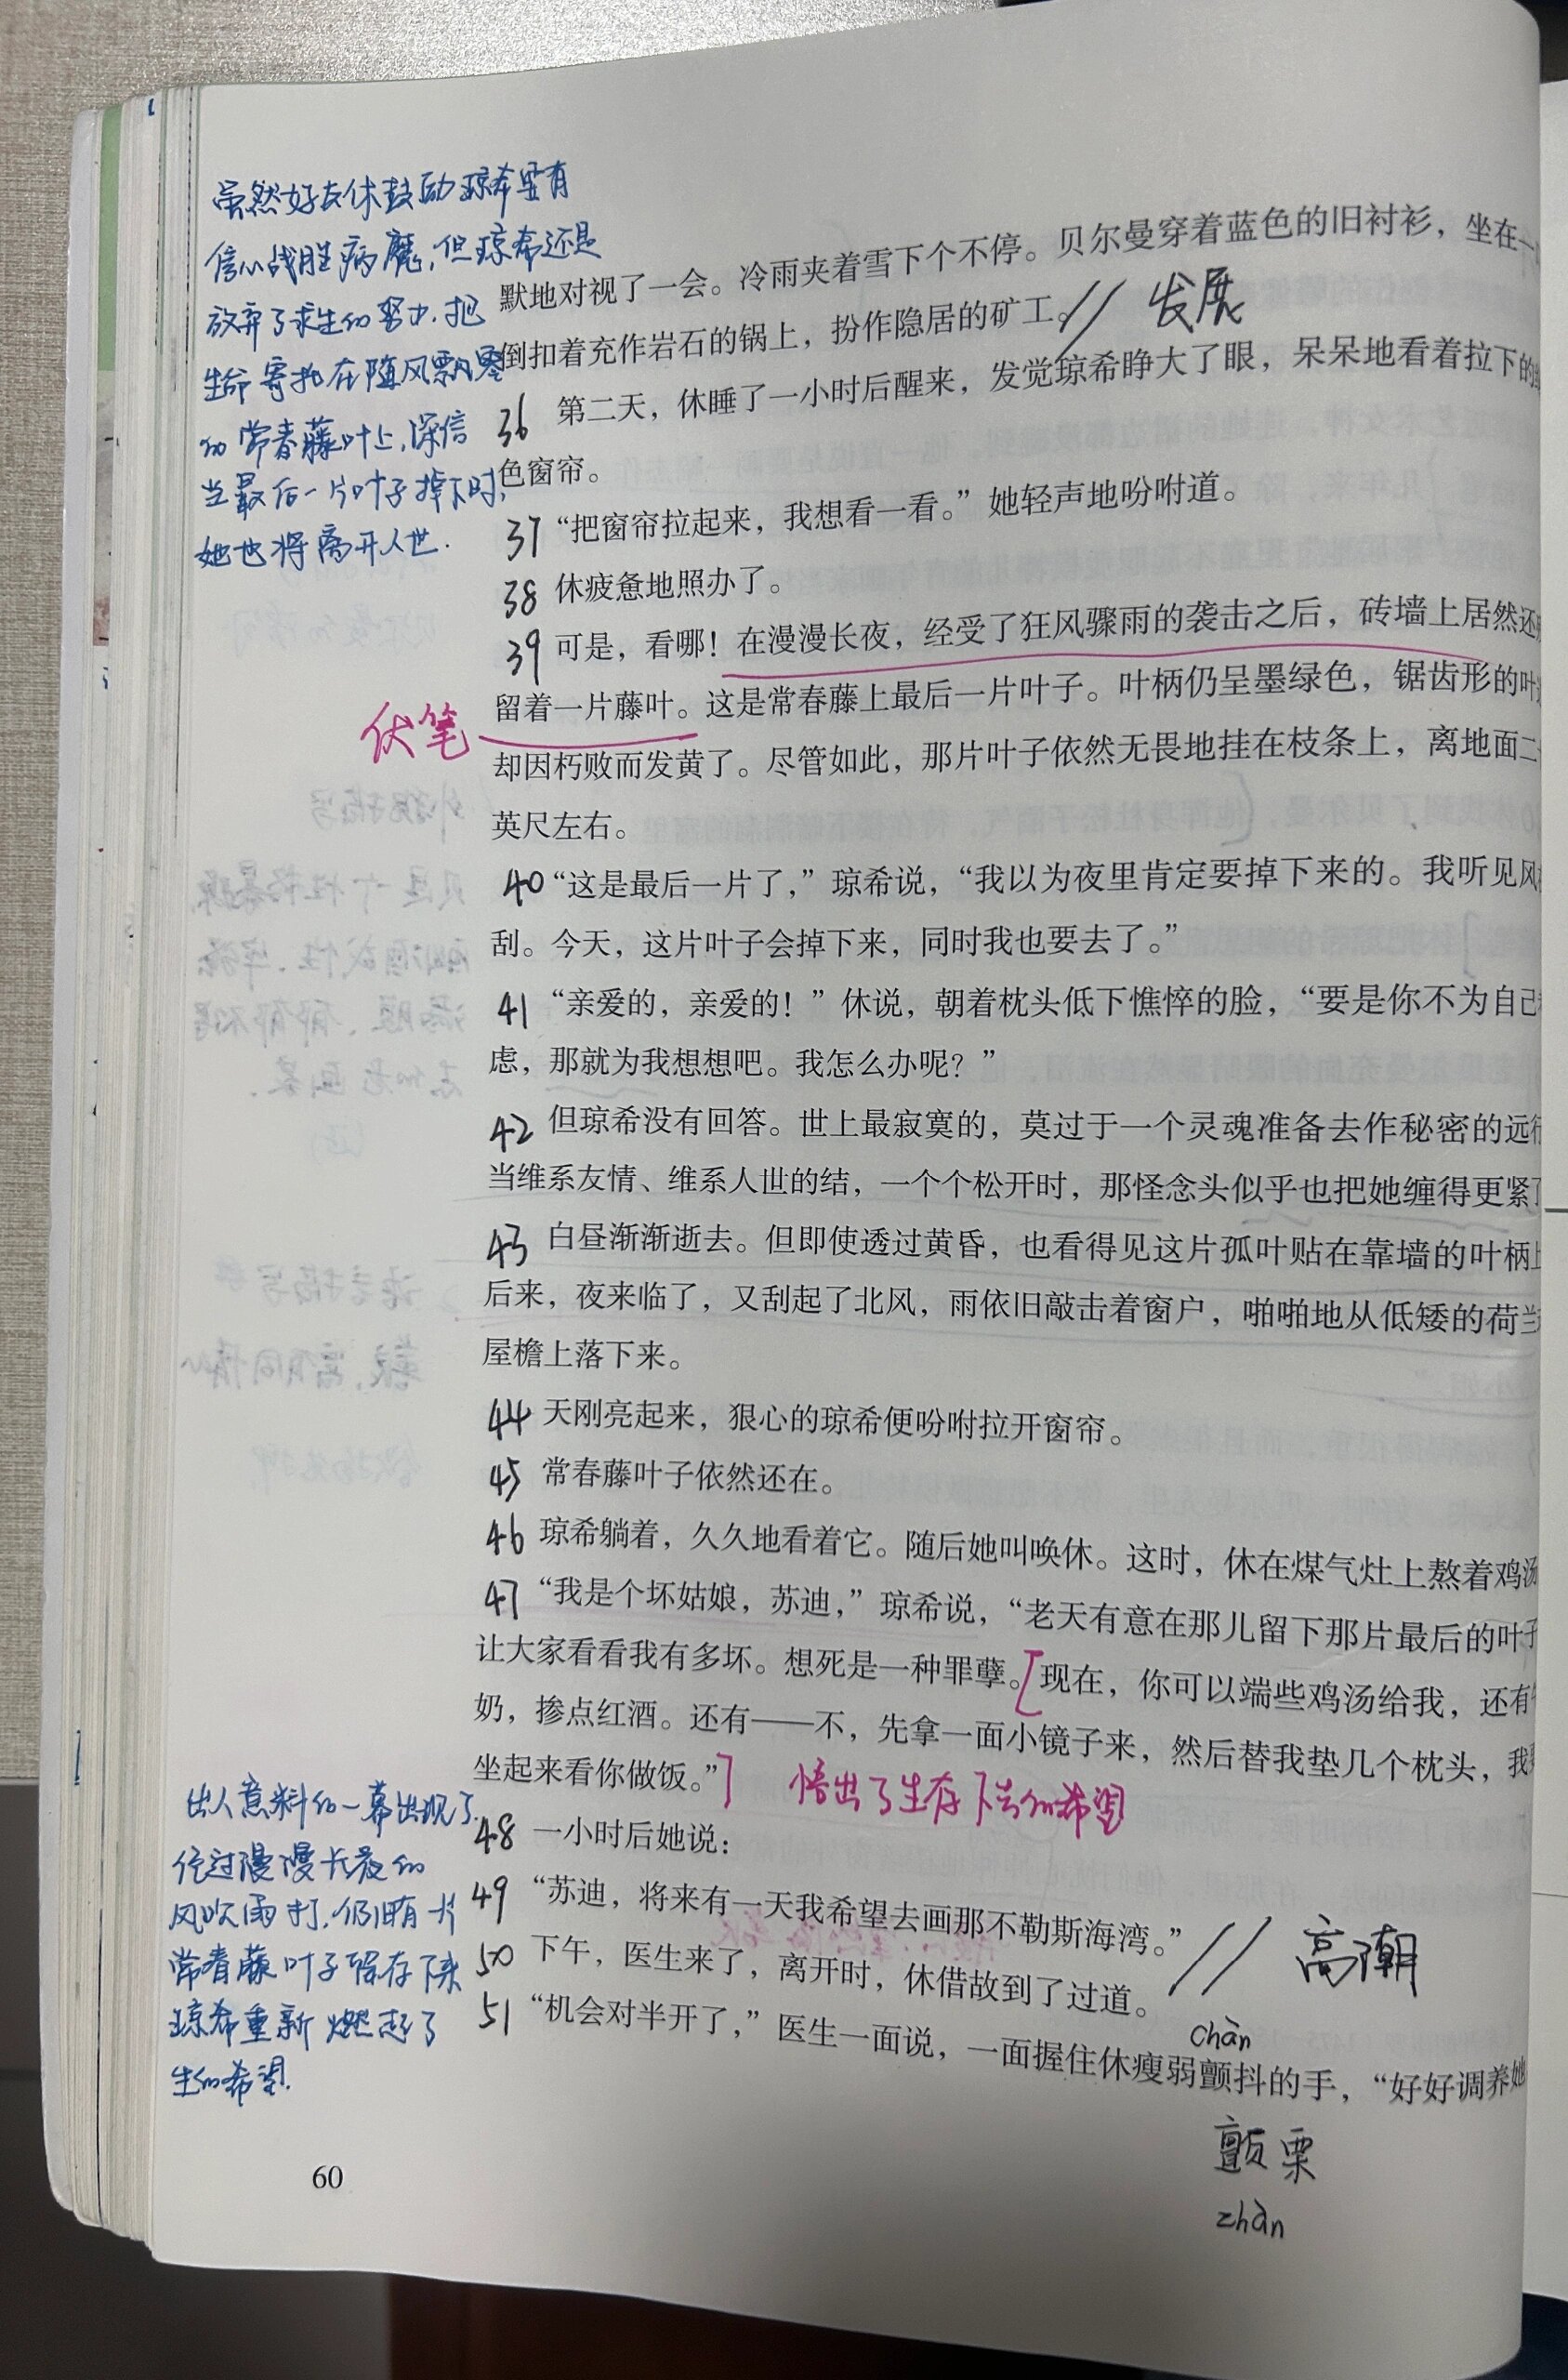 虽然好友休鼓励琼希要有
信心战胜病魔，但琼希还是
放弃了求生的努力，把
生命寄托在随风飘零
的常春藤叶上，深信
当最后一片叶子掉下时，
她也将离开人世．
默地对视了一会。冷雨夹着雪下个不停。贝尔曼穿着蓝色的旧衬衫，坐在一
倒扣着充作岩石的锅上，扮作隐居的矿工。// 发展
36 第二天，休睡了一小时后醒来，发觉琼希睁大了眼，呆呆地看着拉下的
色窗帘。
37 “把窗帘拉起来，我想看一看。”她轻声地吩咐道。
38 休疲惫地照办了。
39 可是，看哪！在漫漫长夜，经受了狂风骤雨的袭击之后，砖墙上居然还
伏笔
留着一片藤叶。这是常春藤上最后一片叶子。叶柄仍呈墨绿色，锯齿形的叶
却因朽败而发黄了。尽管如此，那片叶子依然无畏地挂在枝条上，离地面二
英尺左右。
40 “这是最后一片了，”琼希说，“我以为夜里肯定要掉下来的。我听见风
刮。今天，这片叶子会掉下来，同时我也要去了。”
41 “亲爱的，亲爱的！”休说，朝着枕头低下憔悴的脸，“要是你不为自己
虑，那就为我想想吧。我怎么办呢？”
42 但琼希没有回答。世上最寂寞的，莫过于一个灵魂准备去作秘密的远行
当维系友情、维系人世的结，一个个松开时，那怪念头似乎也把她缠得更紧了
43 白昼渐渐逝去。但即使透过黄昏，也看得见这片孤叶贴在靠墙的叶柄上
后来，夜来临了，又刮起了北风，雨依旧敲击着窗户，啪啪地从低矮的荷兰
屋檐上落下来。
44 天刚亮起来，狠心的琼希便吩咐拉开窗帘。
45 常春藤叶子依然还在。
46 琼希躺着，久久地看着它。随后她叫唤休。这时，休在煤气灶上熬着鸡汤
47 “我是个坏姑娘，苏迪，”琼希说，“老天有意在那儿留下那片最后的叶子
让大家看看我有多坏。想死是一种罪孽。[现在，你可以端些鸡汤给我，还有
奶，掺点红酒。还有——不，先拿一面小镜子来，然后替我垫几个枕头，我
坐起来看你做饭。”] 悟出了生存下去的希望
出人意料的一幕出现了，
经过漫漫长夜的
风吹雨打，仍旧有一片
常春藤叶子保存下来
琼希重新燃起了
生的希望．
48 一小时后她说：
49 “苏迪，将来有一天我希望去画那不勒斯海湾。” // 高潮
50 下午，医生来了，离开时，休借故到了过道。
chàn
51 “机会对半开了，”医生一面说，一面握住休瘦弱颤抖的手，“好好调养她
颤栗
zhàn
60